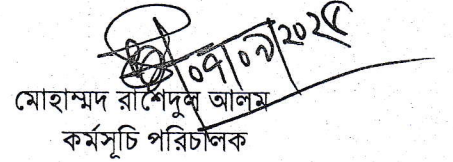 ০৭|০৭|২০২৫
মোহাম্মদ রাশেদুল আলম
কর্মসূচি পরিচালক